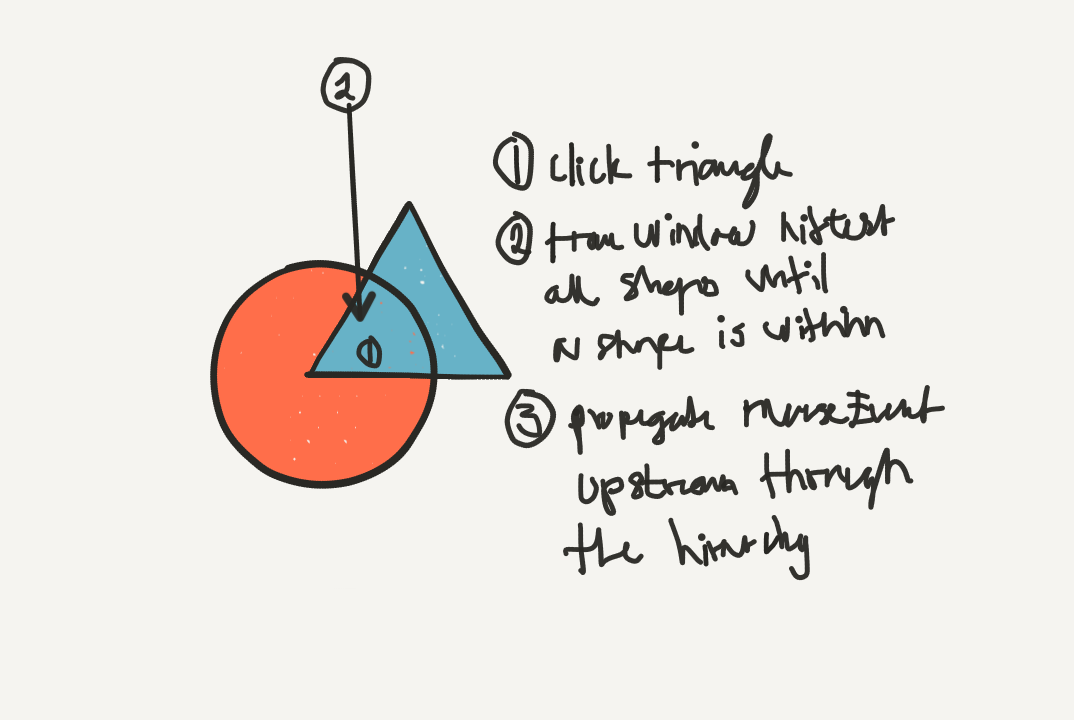 2
1
① click triangle
② from window hittest
all shapes until
a shape is within
③ propagate mouseEvent
upstream through
the hierarchy